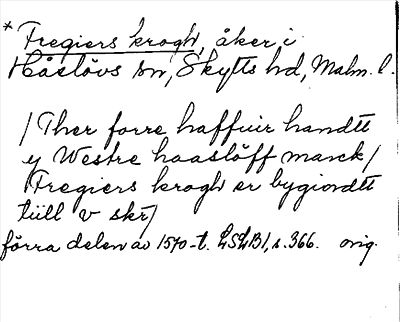 * Fregiers krogh, åker i
Håslövs sn, Skytts hd, Malm. l.
/Ther forre haffuir handtt
y Westre haaslöff marck/
Fregiers krogh er bygiordtt
tiill v skr/
förra delen av 1570-t. LSLB1, s. 366. orig.